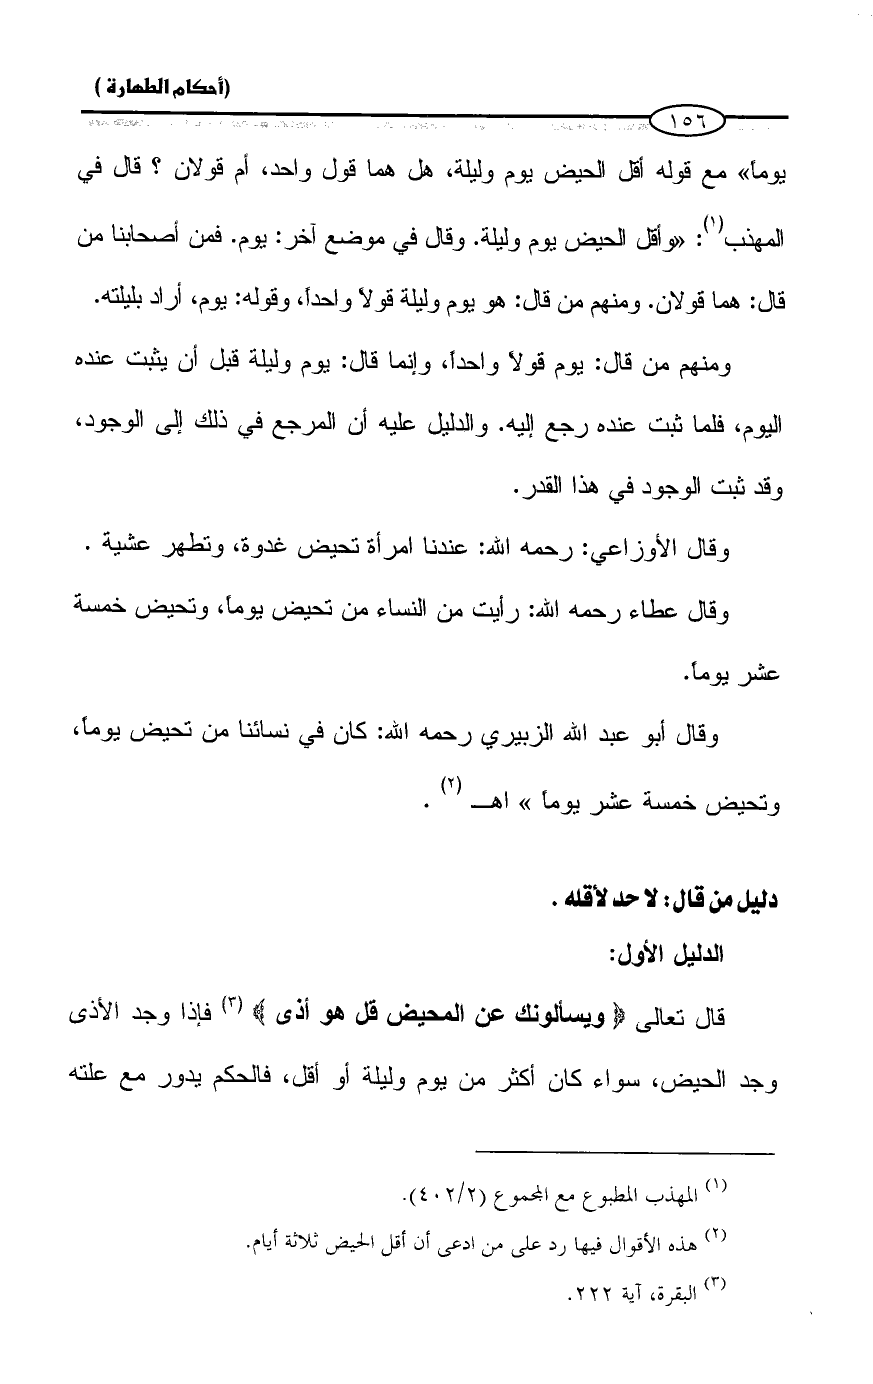 (أحكام الطهارة )
١٥٦
يوماً» مع قوله أقل الحيض يوم وليلة، هل هما قول واحد، أم قولان ؟ قال في
المهذب(١): «وأقل الحيض يوم وليلة. وقال في موضع آخر: يوم. فمن أصحابنا من
قال: هما قولان. ومنهم من قال: هو يوم وليلة قولاً واحداً، وقوله: يوم، أراد بليلته.
ومنهم من قال: يوم قولاً واحداً، وإنما قال: يوم وليلة قبل أن يثبت عنده
اليوم، فلما ثبت عنده رجع إليه. والدليل عليه أن المرجع في ذلك إلى الوجود،
وقد ثبت الوجود في هذا القدر.
وقال الأوزاعي: رحمه الله: عندنا امرأة تحيض غدوة، وتطهر عشية .
وقال عطاء رحمه الله: رأيت من النساء من تحيض يوماً، وتحيض خمسة
عشر يوماً.
وقال أبو عبد الله الزبيري رحمه الله: كان في نسائنا من تحيض يوماً،
وتحيض خمسة عشر يوماً » اهـــ (٢) .
دليل من قال: لا حد لأقله .
الدليل الأول:
قال تعالى ﴿ ويسألونك عن المحيض قل هو أذى ﴾ (٣) فإذا وجد الأذى
وجد الحيض، سواء كان أكثر من يوم وليلة أو أقل، فالحكم يدور مع علته
(١) المهذب المطبوع مع المجموع (٤٠٢/٢).
(٢) هذه الأقوال فيها رد على من ادعى أن أقل الحيض ثلاثة أيام.
(٣) البقرة، آية ٢٢٢.